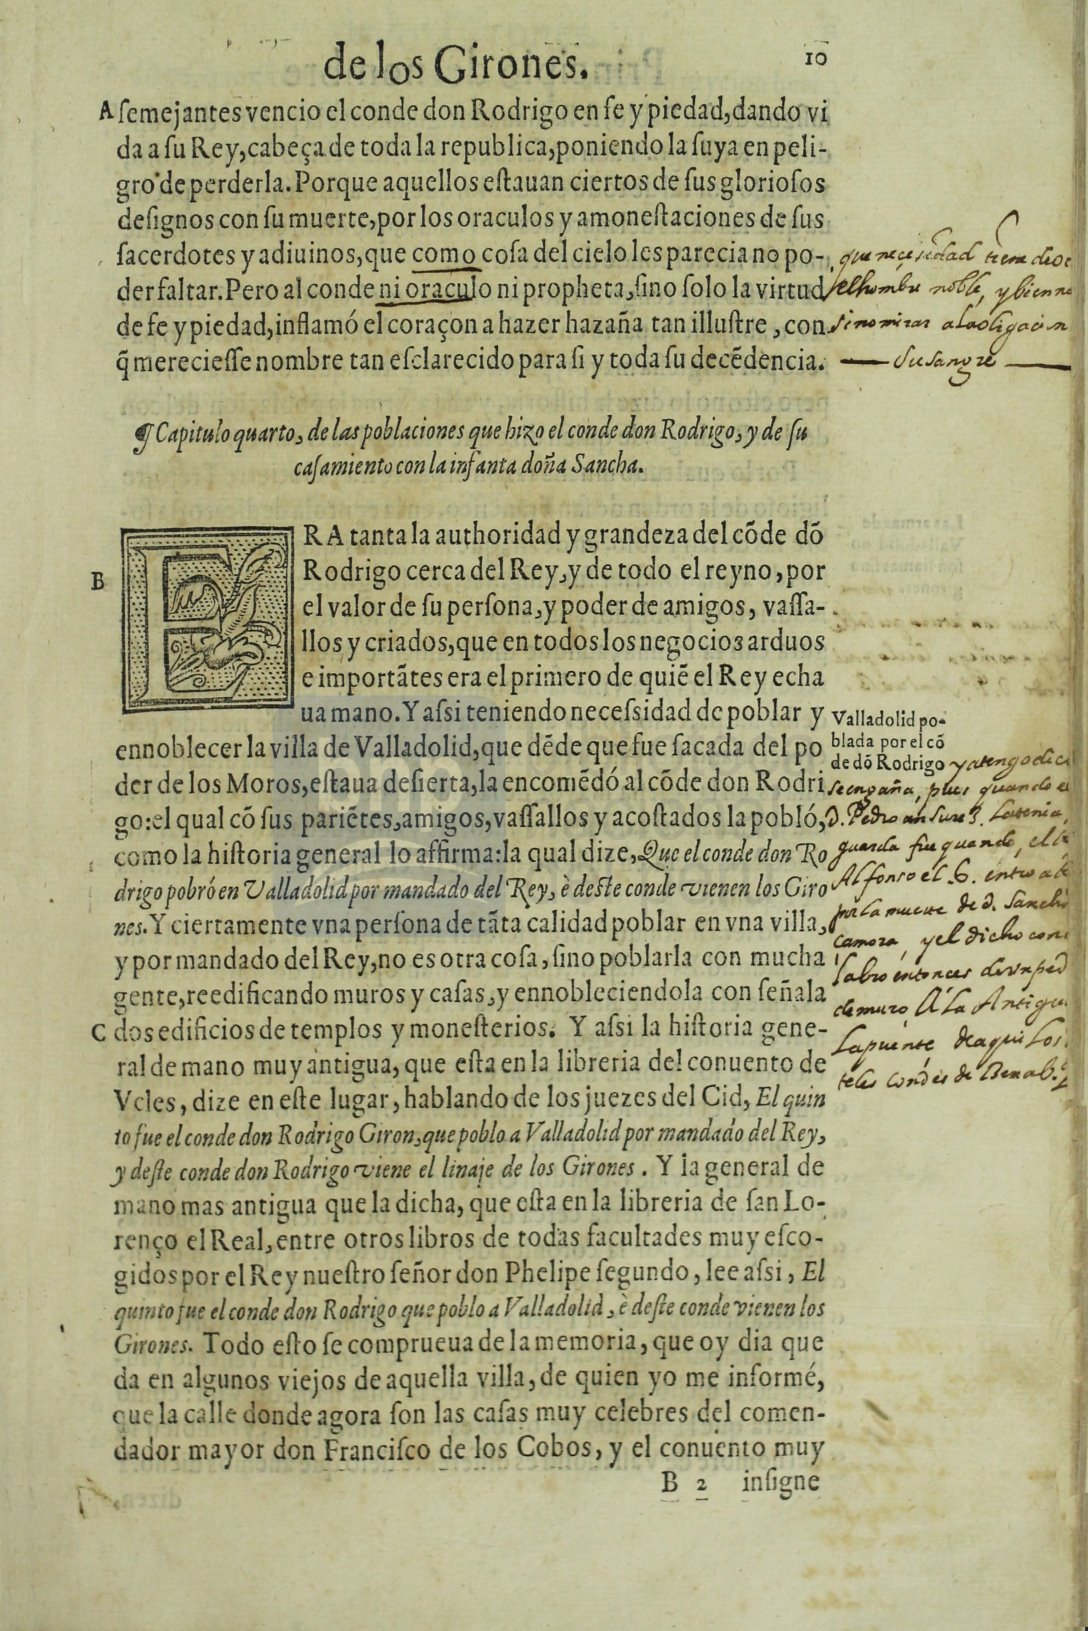 de los Girones. 10
A semejantes vencio el conde don Rodrigo en fe y piedad, dando vi
da a su Rey, cabeça de toda la republica, poniendo la suya en peli-
gro de perderla. Porque aquellos estauan ciertos de sus gloriosos
designos con su muerte, por los oraculos y amonestaciones de sus
sacerdotes y adiuinos, que como cosa del cielo les parecia no po-
der faltar. Pero al conde ni oraculo ni propheta, sino solo la virtud
de fe y piedad, inflamó el coraçon a hazer hazaña tan illustre, con
q̃ mereciesse nombre tan esclarecido para si y toda su decẽdencia.
que necesidad tiene dios
el hombre noble, y bien
sino mirar a la obligacion
su sangre
¶ Capitulo quarto, de las poblaciones que hizo el conde don Rodrigo, y de su
casamiento con la infanta doña Sancha.
B
ERA tanta la authoridad y grandeza del cõde dõ
Rodrigo cerca del Rey, y de todo el reyno, por
el valor de su persona, y poder de amigos, vassa-
llos y criados, que en todos los negocios arduos
e importãtes era el primero de quiẽ el Rey echa
ua mano. Y assi teniendo necessidad de poblar y
ennoblecer la villa de Valladolid, que dẽde que fue sacada del po
der de los Moros, estaua desierta, la encomẽdó al cõde don Rodri
go: el qual cõ sus pariẽtes, amigos, vassallos y acostados la pobló,
como la historia general lo affirma: la qual dize, Que el conde don Ro
drigo pobró en Valladolid por mandado del Rey, è deste conde vienen los Giro
nes. Y ciertamente vna persona de tãta calidad poblar en vna villa,
y por mandado del Rey, no es otra cosa, sino poblarla con mucha
gente, reedificando muros y casas, y ennobleciendola con señala
C dos edificios de templos y monesterios. Y assi la historia gene-
ral de mano muy antigua, que esta en la libreria del conuento de
Vcles, dize en este lugar, hablando de los juezes del Cid, El quin
to fue el conde don Rodrigo Giron, que poblo a Valladolid por mandado del Rey,
y deste conde don Rodrigo viene el linaje de los Girones. Y la general de
mano mas antigua que la dicha, que esta en la libreria de san Lo-
renço el Real, entre otros libros de todas facultades muy esco-
gidos por el Rey nuestro señor don Phelipe segundo, lee assi, El
quinto fue el conde don Rodrigo que poblo a Valladolid, è deste conde vienen los
Girones. Todo esto se comprueua de la memoria, que oy dia que
da en algunos viejos de aquella villa, de quien yo me informé,
que la calle donde agora son las casas muy celebres del comen-
dador mayor don Francisco de los Cobos, y el conuento muy
B 2 insigne
Valladolid po-
blada por el cõ
de dõ Rodrigo
ya tengo
se engaña, pues quando
D. Pedro ansures
guarda fue quando, el
Alfonso el 6. entro a
por la muerte de d. Sancho
çamora, y el dicho
labro entonces
de muro A la Antigua
la puente
condes de